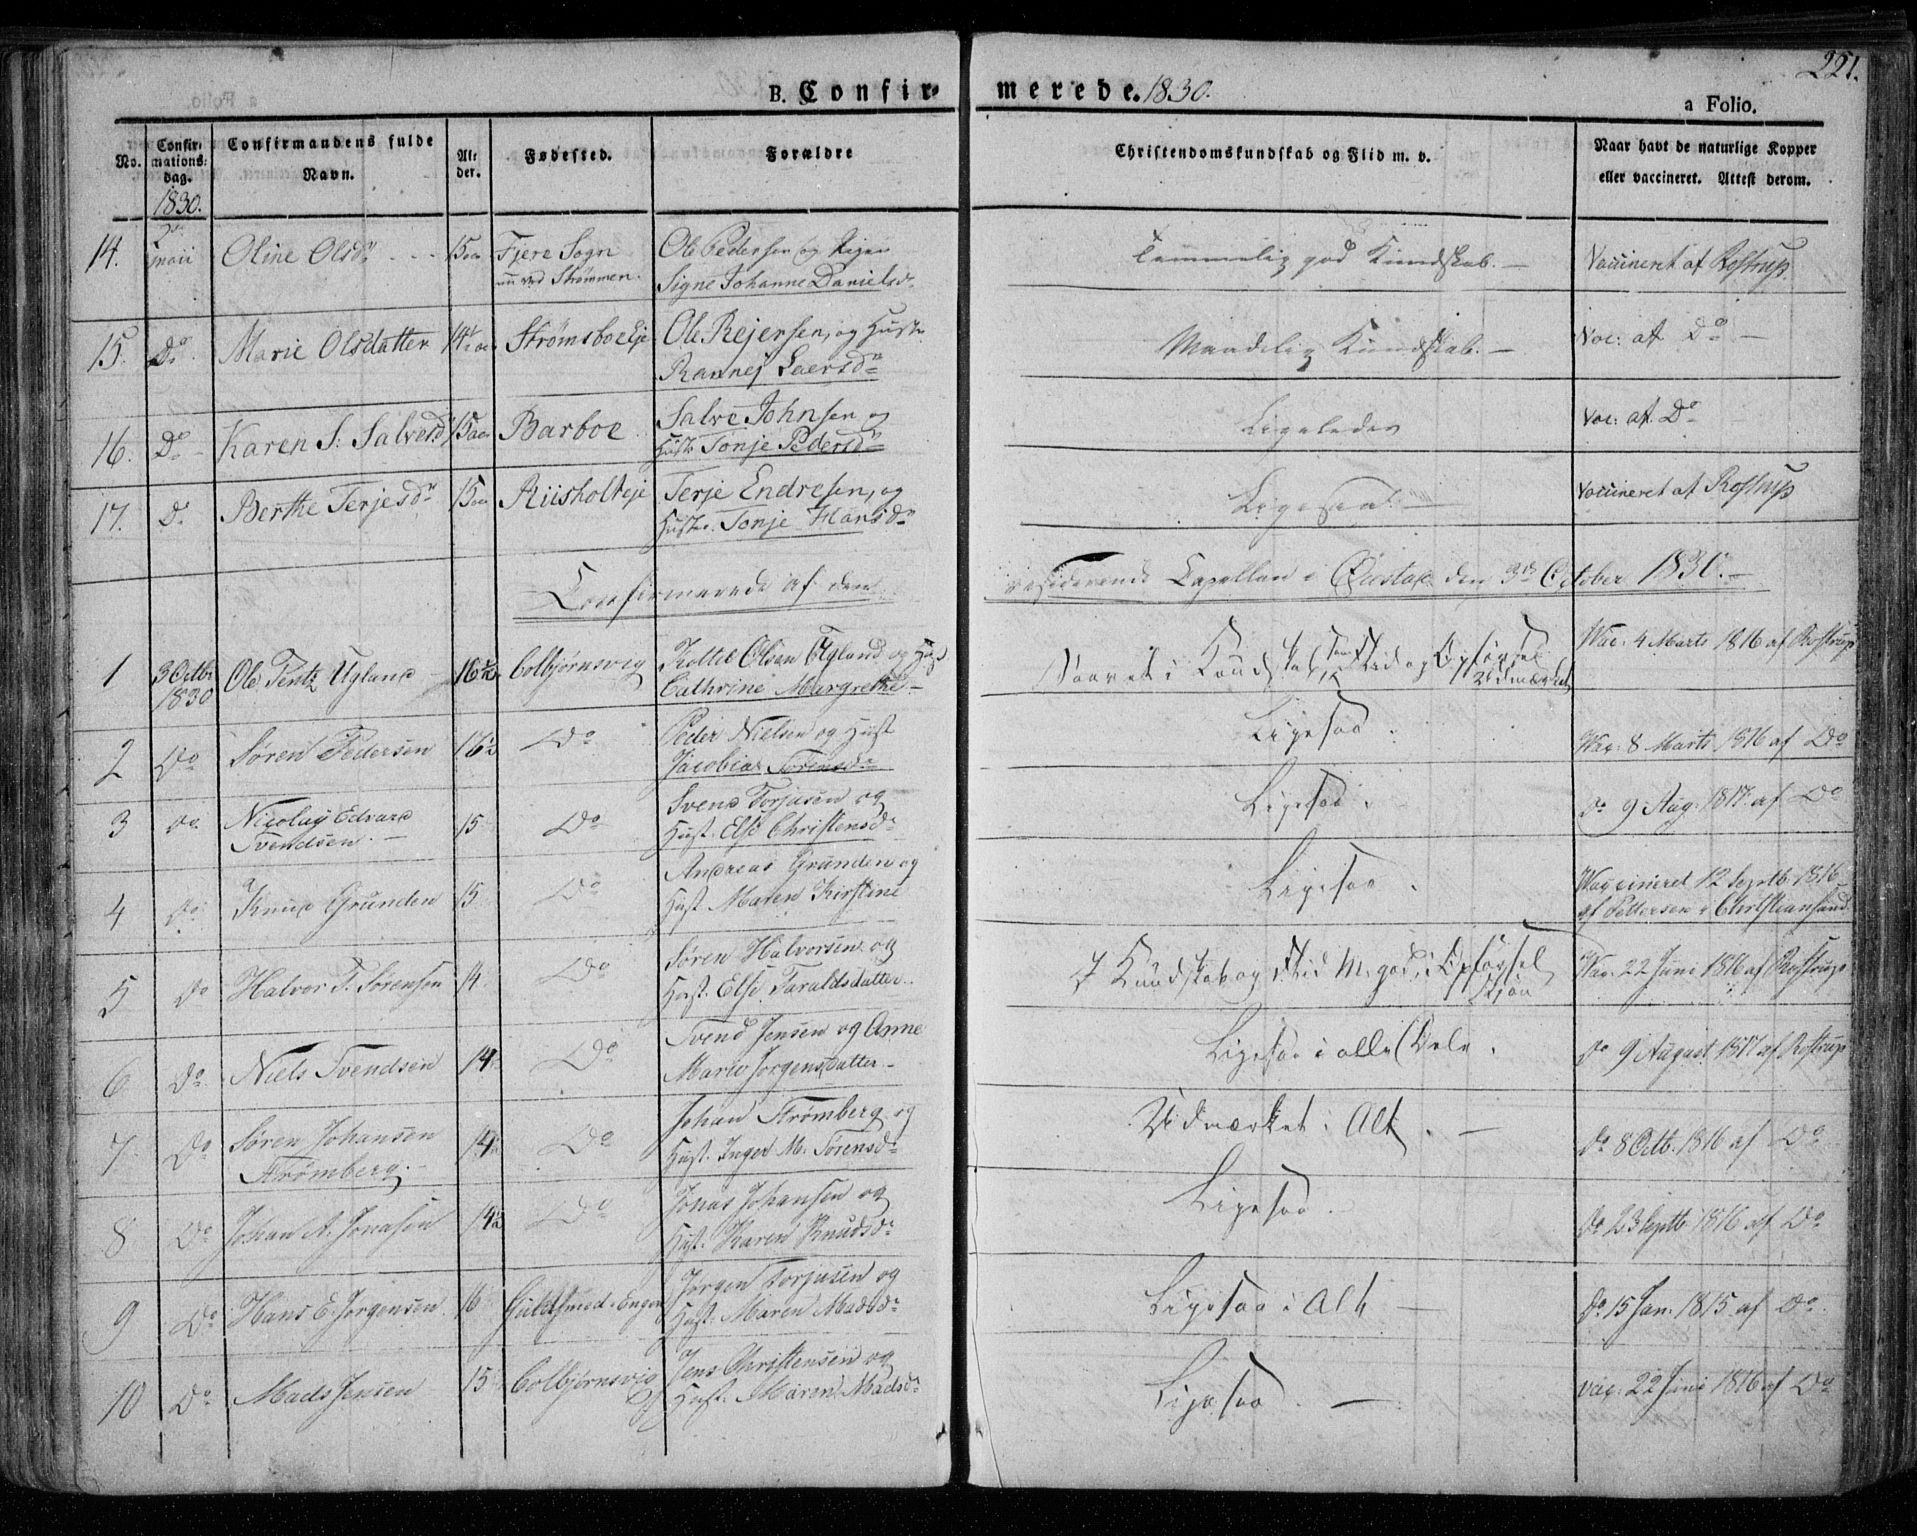 221.
B. Confirmerede. 1830.
a Folio.
No.
Confirmationsdag. 1830.
Confirmandens fulde Navn.
Alder.
Fødested.
Forældre
Christendomskundskab og Flid m. v.
Naar havt de naturlige Kopper eller vaccineret. Attest derom.
14. 2den Maii Oline Olsdr 15 Fjere Sogn ved Strømmen. Ole Pedersen og Signe Johanne Danielsdr Temmelig god Kundskab. — Vaccineret af Rostrup.
15. Do Marie Olsdatter 14½ Strømsboeeje Ole Rejersen, og Hustr Rannej Laersdr Maadelig Kundskab. — Vac: af Do —
16. Do Karen S: Salvesdr 15 Barboe Salve Johnsen og Hustr Tonje Pedersdr Ligeledes Vac: af Do
17. Do Berthe Terjesdr 15 Riisholteje Terje Endresen, og Hustr. Tonje Hansdr Ligesaa — Vaccineret af Rostrup
Confirmerede af den residerende Capellan i Øiestad den 3die October 1830. —
1 3 Octbr 1830 Ole Tentz Ugland 16½ Colbjørnsvig Kottel Olsen Ugland og Hust Cathrine Margrethe — Vaaret i Kundskab, samt Flid og Opførsel Udmærket Vac: 4 Marts 1816 af Rostrup
2 Do Søren Pedersen 16½ Do Peder Nielsen og Hust Jacobia Sørensdr Ligesaa. Vac: 8 Marts 1816 af Do
3 Do Nicolay Edvard Svendsen. — 15 Do Svend Torjusen og Hust. Else Christensdr Ligesaa. Do 9 Aug: 1817. af Do
4 Do Knud Grunden 15 Do Andreas Grunden og Hust Maren Kirstine Ligesaa. Vaccineret 12 Septb. 1816 af Pettersen i Christiansand
5 Do Halvor T. Sørensen 14 Do Søren Halvorsen og Hust. Else Taraldsdatter. I Kundskab og Flid M. god, i Opførsel Skjøn Vac: 22 Juni 1816 af Rostrup
6 Do Niels Svendsen 14½ Do Svend Jensen og Anne Marie Jørgensdatter — Ligesaa i alle Dele. Do 9 August 1817 af Rostrup
7 Do Søren Johansen Strømberg. — 14½ Do Johan Strømberg og Hust. Inger M. Sørensdr Udmærket i Alt. — Do 8 Octb. 1816 af Do
8 Do Johan A. Jonasen 14½ Do Jonas Johansen og Hust. Karen Knudsdr Ligesaa. Do 23 Septb 1816 af Do
9 Do Hans E. Jørgensen 16 Guldsmed-Engen Jørgen Torjusen og Hust. Maren Madsdr Ligesaa i Alt — Do 15 Jan. 1815 af Do.
10 Do Mads Jensen 15 Colbjørnsvig Jens Christensen og Hust. Maren Madsdr Ligesaa. — Vac: 22 Juni 1816 af Do